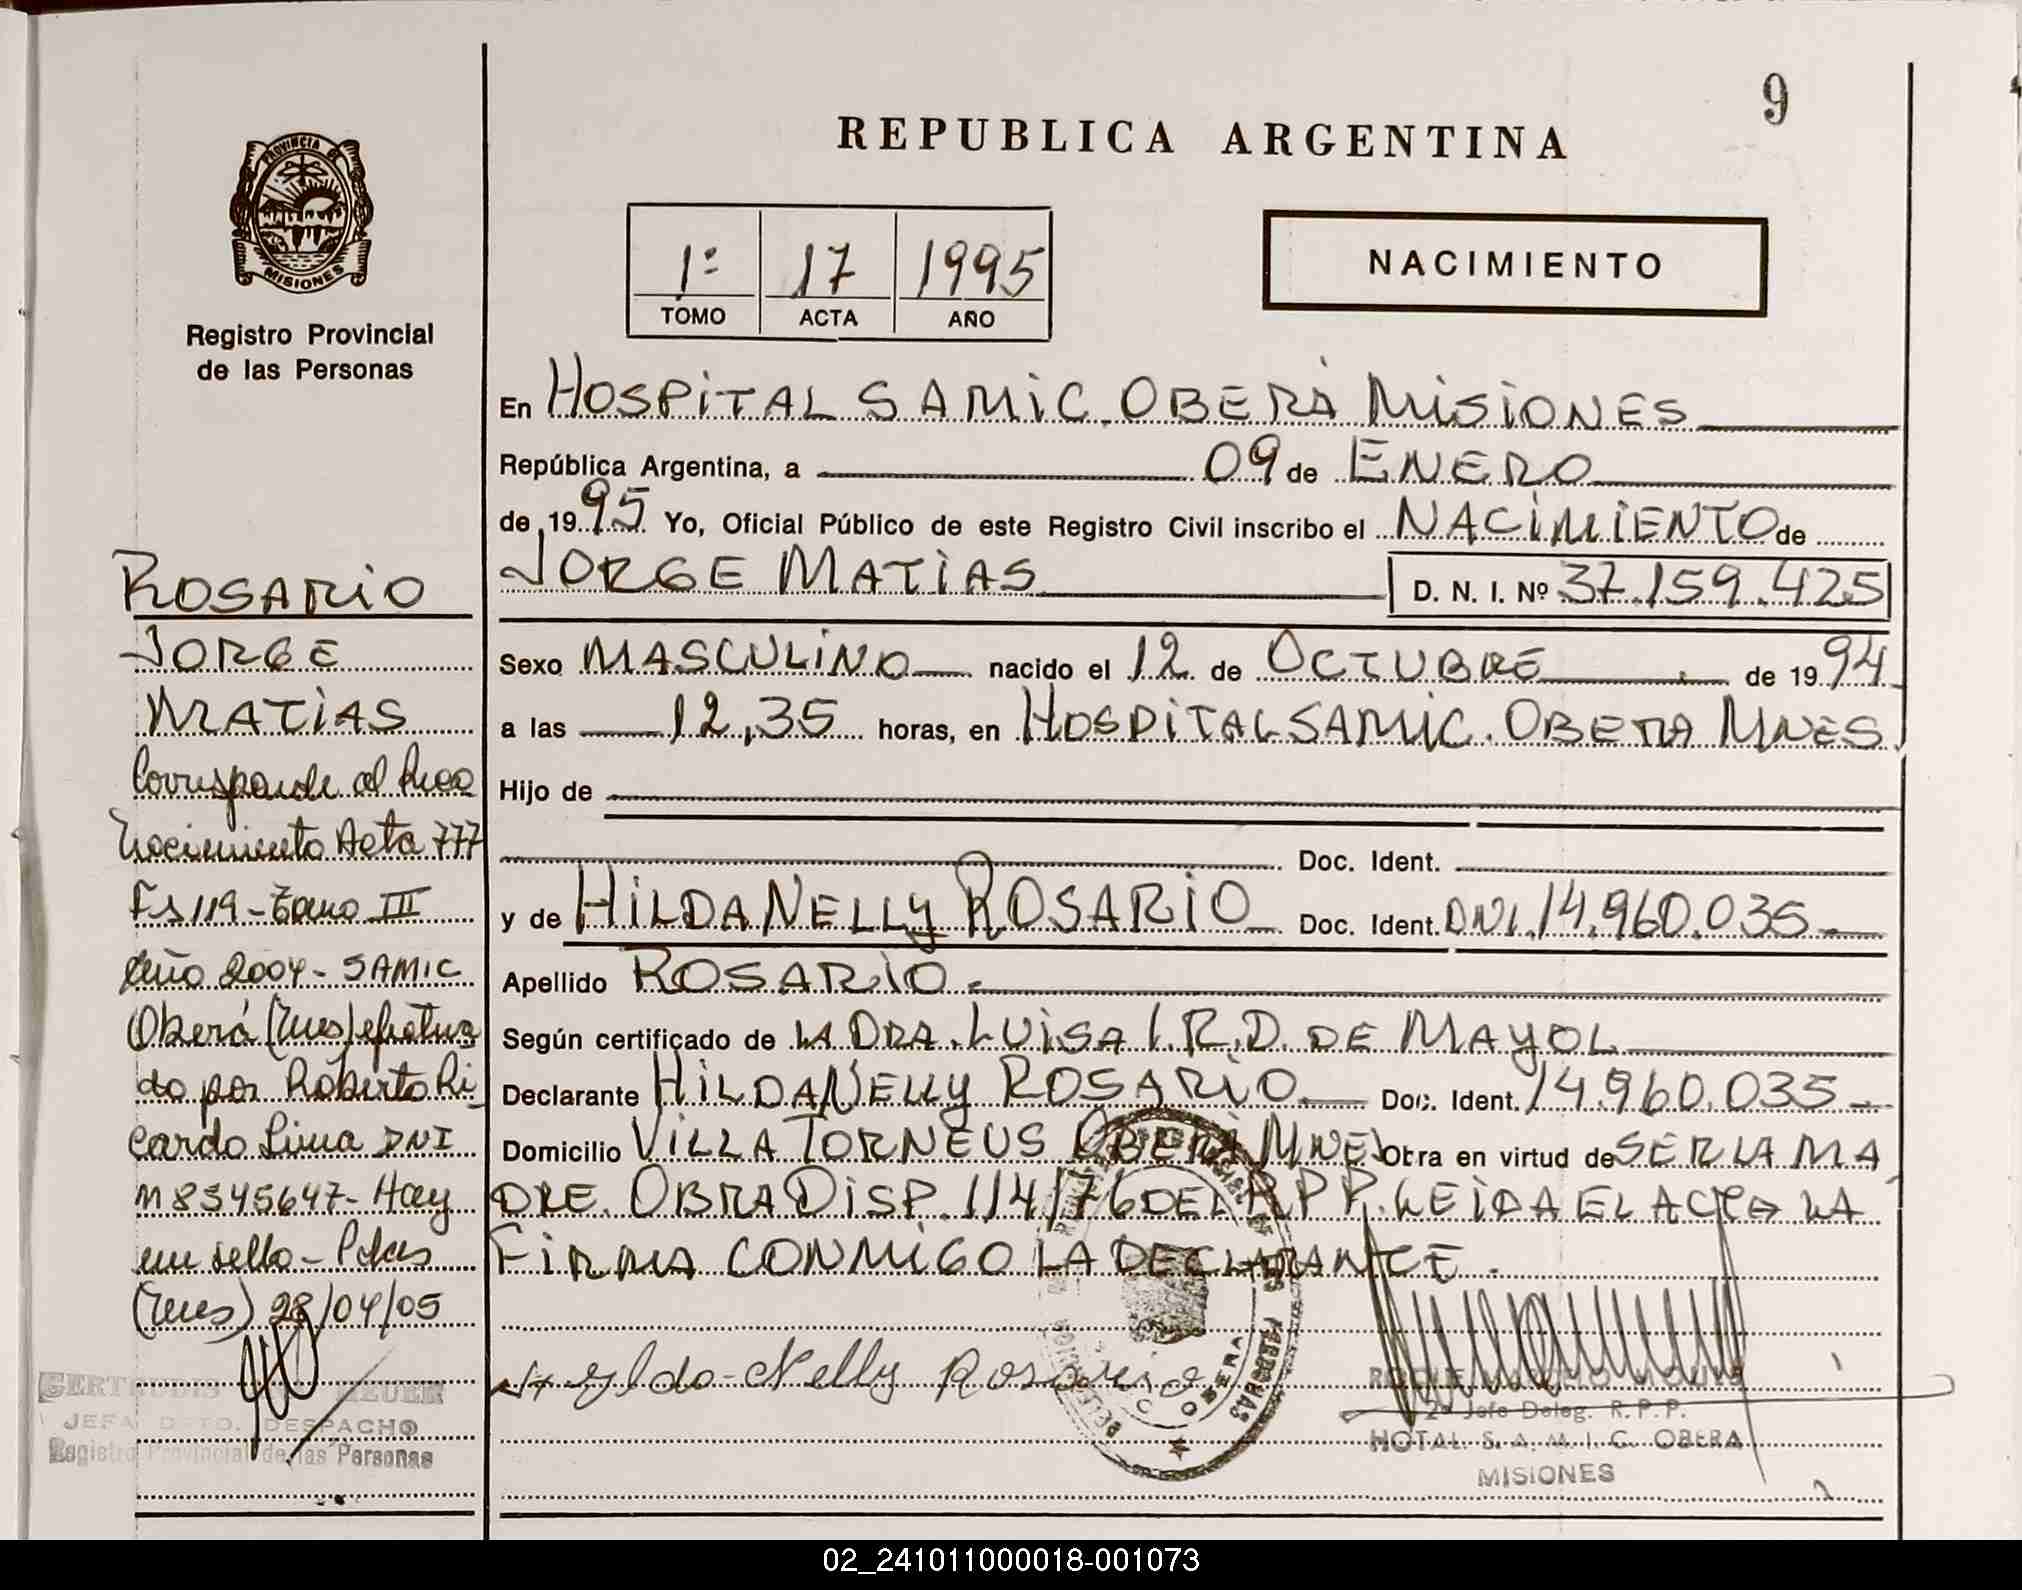 9
REPUBLICA ARGENTINA
PROVINCIA DE
MISIONES
Registro Provincial
de las Personas
1º 17 1995
TOMO ACTA AÑO
NACIMIENTO
En HOSPITAL SAMIC. OBERÁ MISIONES
República Argentina, a 09 de ENERO
de 1995 Yo, Oficial Público de este Registro Civil inscribo el NACIMIENTO de
JORGE MATIAS D. N. I. Nº 37.159.425
Sexo MASCULINO nacido el 12 de OCTUBRE de 1994
a las 12,35 horas, en HOSPITAL SAMIC. OBERA MNES.
Hijo de
Doc. Ident.
y de HILDA NELLY ROSARIO Doc. Ident. DNI. 14.960.035
Apellido ROSARIO.
Según certificado de LA DRA. LUISA I. R. D. DE MAYOL
Declarante HILDA NELLY ROSARIO Doc. Ident. 14.960.035
Domicilio VILLA TORNEUS OBERA MNES Obra en virtud de SER LA MA
DRE. OBRA DISP. 114/76 DEL R P P. LEIDA EL ACTA LA
FIRMA CONMIGO LA DECLARANTE.
Hylda Nelly Rosario
OBERA
2º Jefe Deleg. R. P. P.
HOTAL. S. A. M. I. C. OBERA
MISIONES
ROSARIO
JORGE
MATIAS
Corresponde al Reco
nocimiento Acta 777
Fs 119 - Tomo III
Año 2004 - SAMIC
Oberá (Mnes) efectua
do por Roberto Ri
cardo Lima DNI
Nº 8345647 - Hay
un sello - Pdas
(Mnes) 28/04/05
GERTRUDIS HEUER
JEFA DPTO. DESPACHO
Registro Provincial de las Personas
02_241011000018-001073